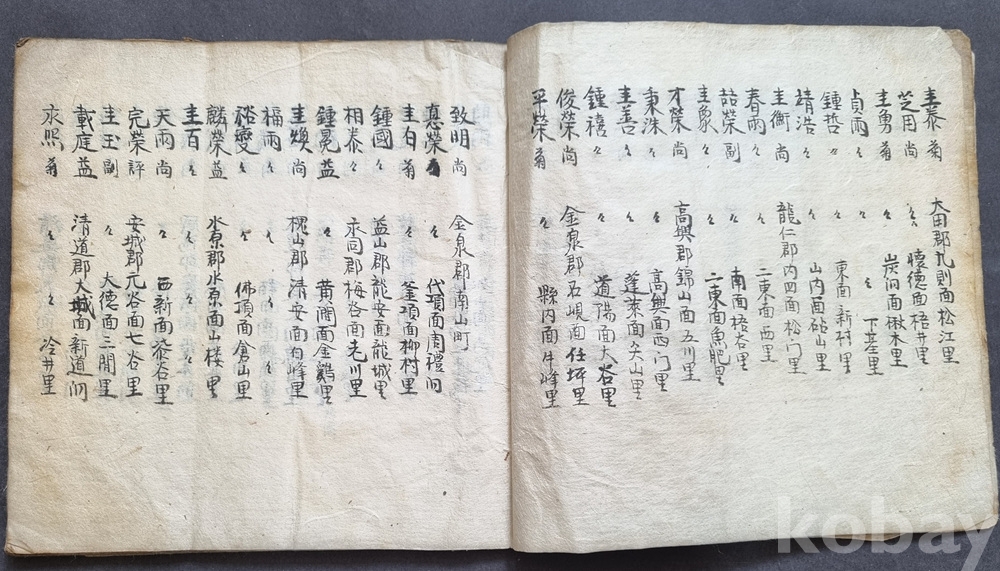 圭泰 翁 大田郡九則面松江里
芝田 尚 〃 懷德面梧井里
圭勇 翁 〃 炭洞面楸木里
貞雨 〃 〃 〃 下基里
鍾哲 〃 〃 東面新村里
靖浩 〃 〃 山內面 里
圭衡 尚 龍仁郡內四面松門里
春雨 〃 〃 二東面西里
喆榮 副 〃 南面梧谷里
圭象 〃 〃 二東面魚肥里
才榮 尚 高興郡錦山面五川里
秉洙 〃 〃 高興面西門里
圭善 〃 〃 蓬萊面 山里
鍾禧 〃 〃 道陽面大谷里
俊榮 尚 金泉郡石峴面任坪里
平榮 翁 〃 縣內面牛峰里
致明 尚 金泉郡南山町
惪榮 翁 〃 代項面周禮洞
圭白 翁 〃 釜項面柳村里
鍾國 〃 益山郡龍安面龍城里
相泰 〃 永同郡梅谷面老川里
鍾冕 益 〃 黃澗面金鷄里
圭煥 尚 槐山郡清安面白峰里
福雨 〃 〃 〃 〃
裕夔 〃 〃 佛頂面倉山里
麟榮 益 水原郡水原面山樓里
圭百 〃 〃 〃 〃
天雨 尚 〃 西新面 谷里
完榮 評 安城郡元谷面七谷里
圭玉 副 〃 大德面三閒里
載庭 益 清道郡大城面新道洞
永熙 翁 〃 〃 冷井里
kobay